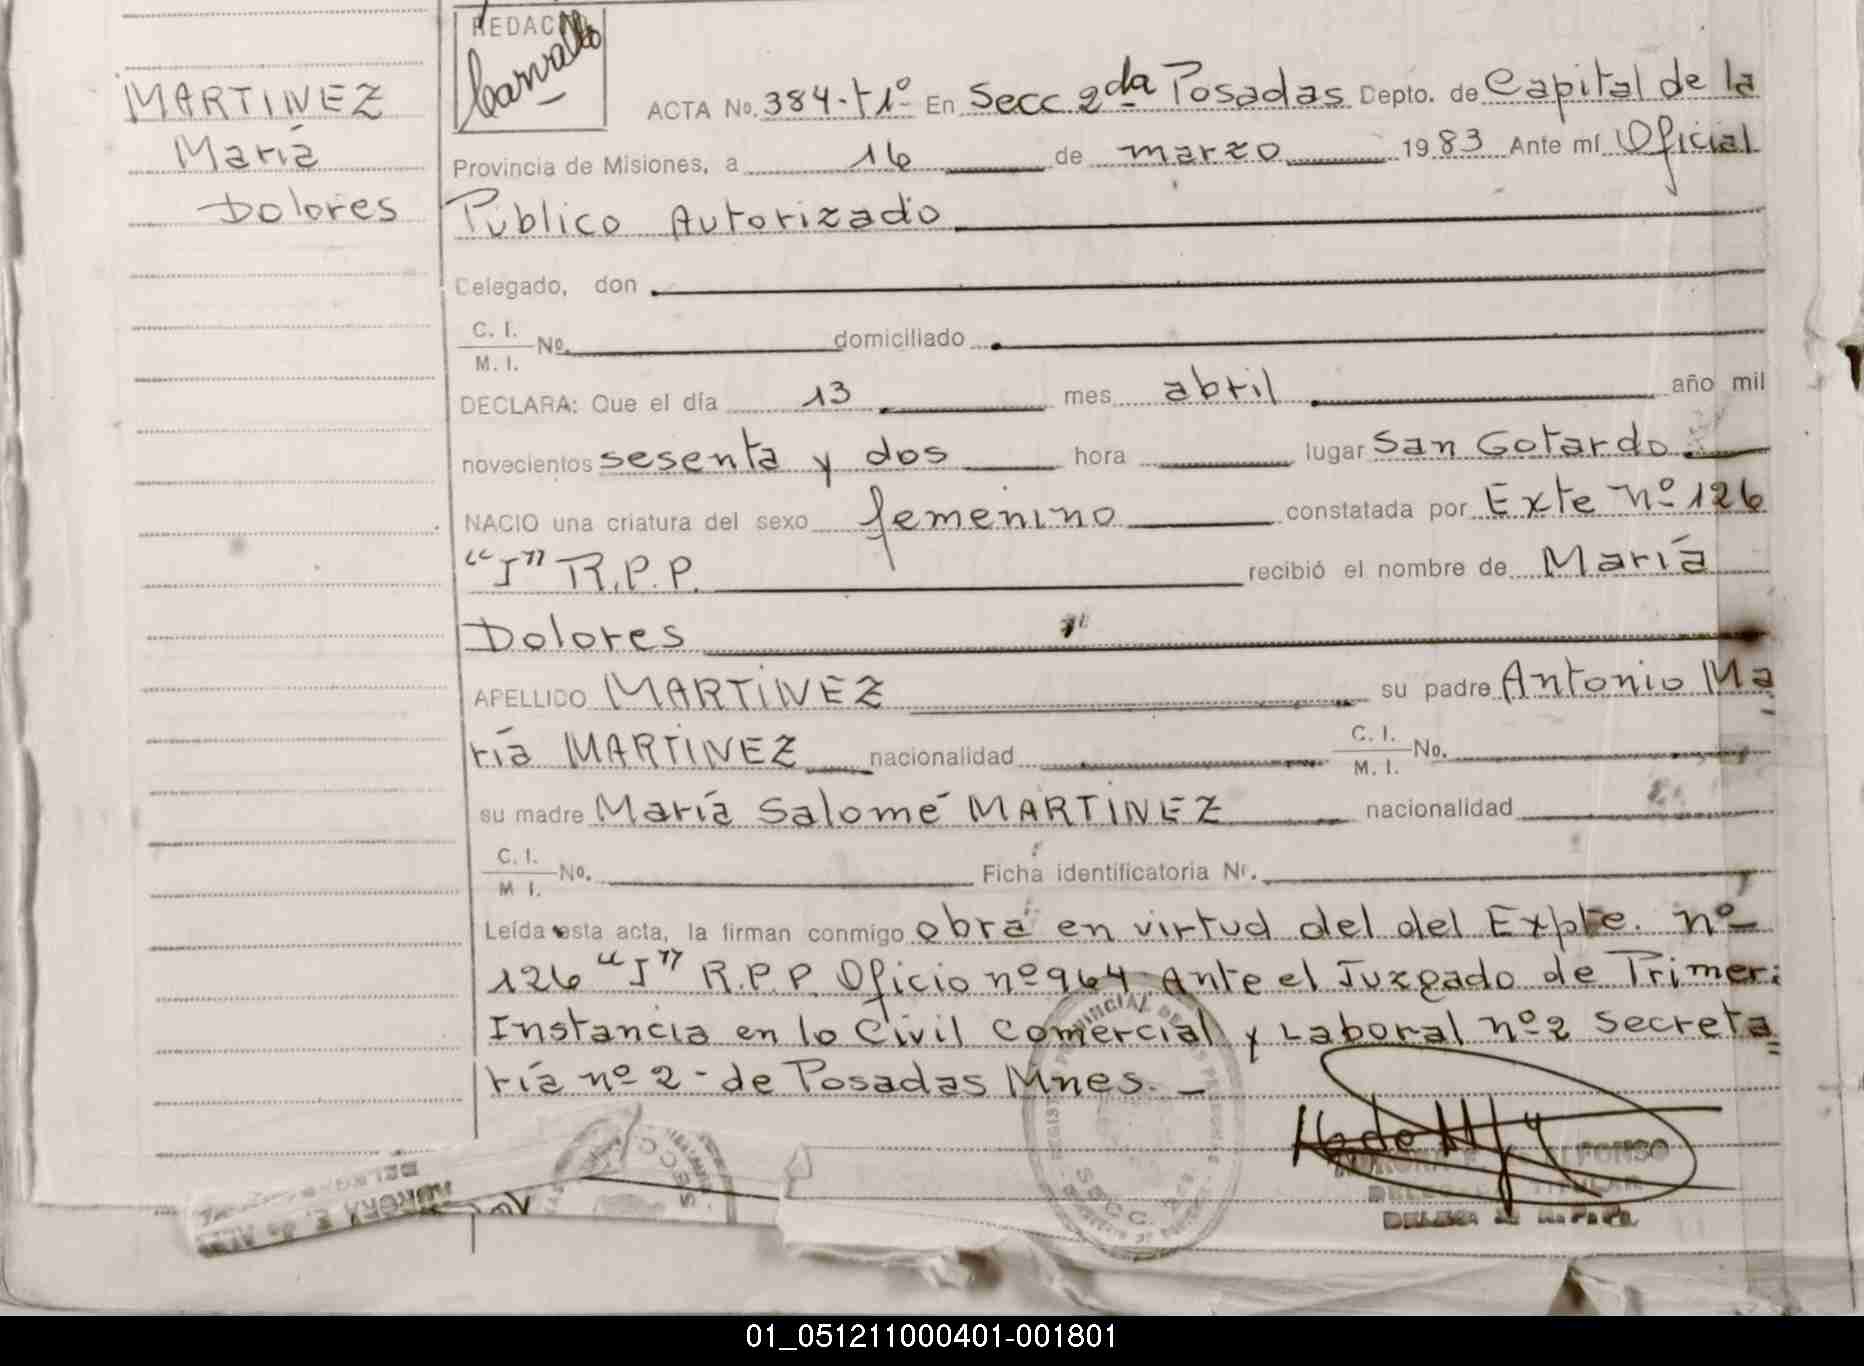 REDAC
Carvallo
MARTINEZ
María
Dolores
ACTA No. 384-t1º En Secc 2da Posadas Depto. de Capital de la
Provincia de Misiones, a 16 de marzo 1983 Ante mí Oficial
Público Autorizado
Delegado, don
C. I.
M. I. No. domiciliado
DECLARA: Que el día 13 mes abril año mil
novecientos sesenta y dos hora lugar San Gotardo
NACIO una criatura del sexo femenino constatada por Exte nº 126
"I" R.P.P. recibió el nombre de María
Dolores
APELLIDO MARTINEZ su padre Antonio Ma
ría MARTINEZ nacionalidad C. I. M. I. No.
su madre María Salomé MARTINEZ nacionalidad
C. I.
M I. No. Ficha identificatoria Nr.
Leída esta acta, la firman conmigo obra en virtud del del Expte. nº
126 "I" R.P.P. Oficio nº 964 Ante el Juzgado de Primer
Instancia en lo Civil Comercial y Laboral nº 2 Secreta
ría nº 2 - de Posadas Mnes.
SECC.
AURORA E. ALFONSO
TITULAR
AURORA E. de
SECC
01_051211000401-001801